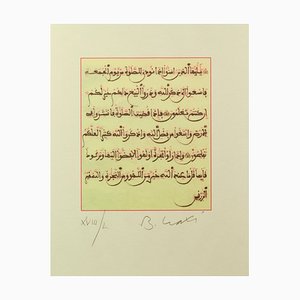 يأيها الذين امنوا إذا نودي للصلوة من يوم الجمعة
فاسعوا إلى ذكر الله وذروا البيع ذلكم خير لكم
إن كنتم تعلمون فإذا قضيت الصلوة فانتشروا في
الارض وابتغوا من فضل الله واذكروا الله كثيرا لعلكم
تفلحون وإذا رأوا تجارة أو لهوا انفضوا إليها وتركوك
قائما قل ما عند الله خير من اللهو ومن التجارة والله خير
الرزقين
XVIII/L B.